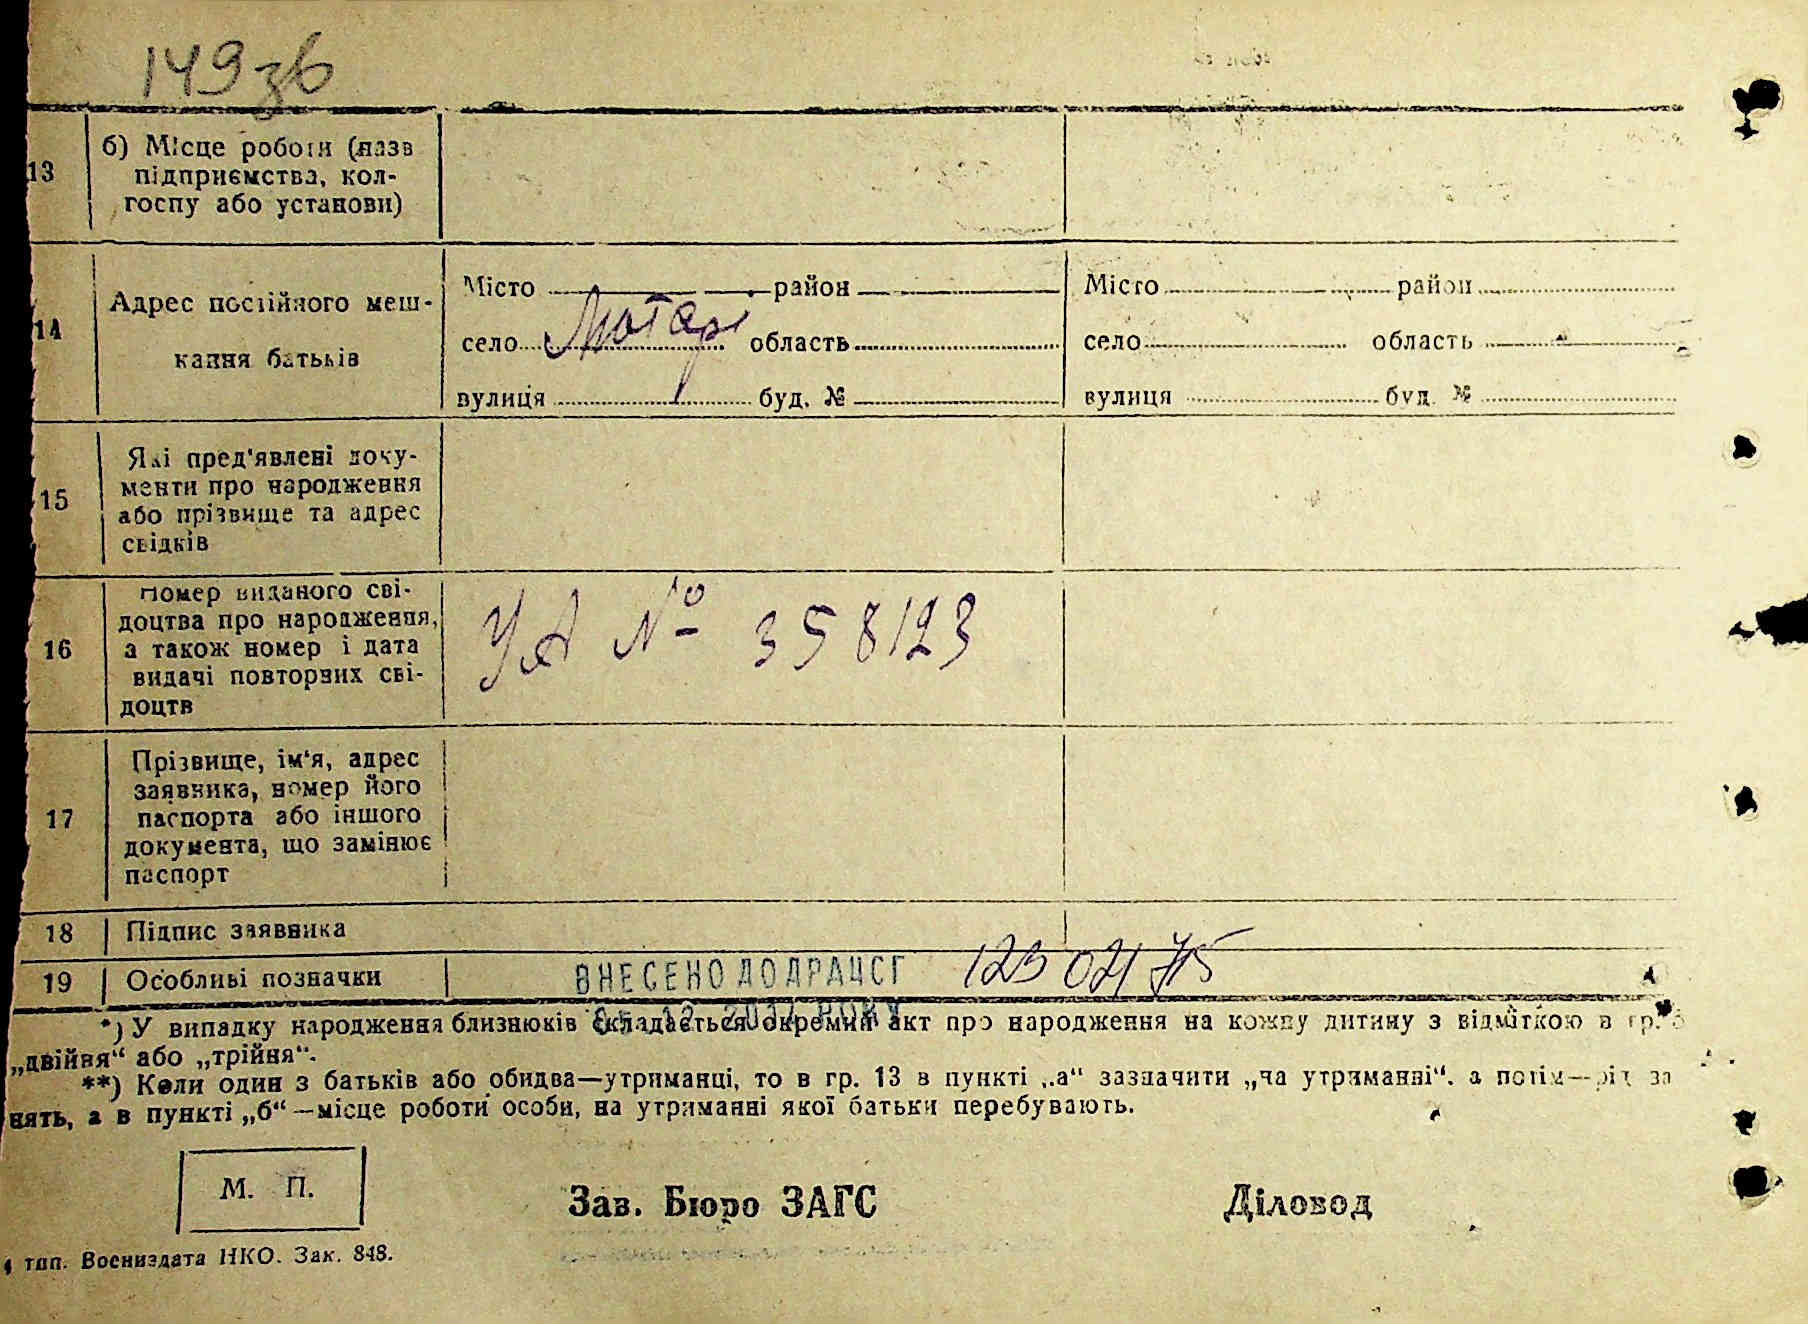 149зв
13 б) Місце роботи (назв
підприємства, кол-
госпу або установи)
14 Адрес постійного меш-
кання батьків
Місто район
село область
вулиця буд. №
Місто район
село область
вулиця буд. №
15 Які пред'явлені доку-
менти про народження
або прізвище та адрес
свідків
16 Номер виданого сві-
доцтва про народження,
а також номер і дата
видачі повторних сві-
доцтв
УА № 358123
17 Прізвище, ім'я, адрес
заявника, номер його
паспорта або іншого
документа, що замінює
паспорт
18 Підпис заявника
19 Особливі позначки ВНЕСЕНО ДО ДРАЦСГ
РОКУ
*) У випадку народження близнюків складається окремий акт про народження на кожну дитину з відміткою в гр. 6
„двійня“ або „трійня“.
**) Коли один з батьків або обидва—утриманці, то в гр. 13 в пункті „а“ зазначити „на утриманні“, а потім—рід за
нять, а в пункті „б“—місце роботи особи, на утриманні якої батьки перебувають.
М. П.
Зав. Бюро ЗАГС Діловод
4 тип. Воениздата НКО. Зак. 848.